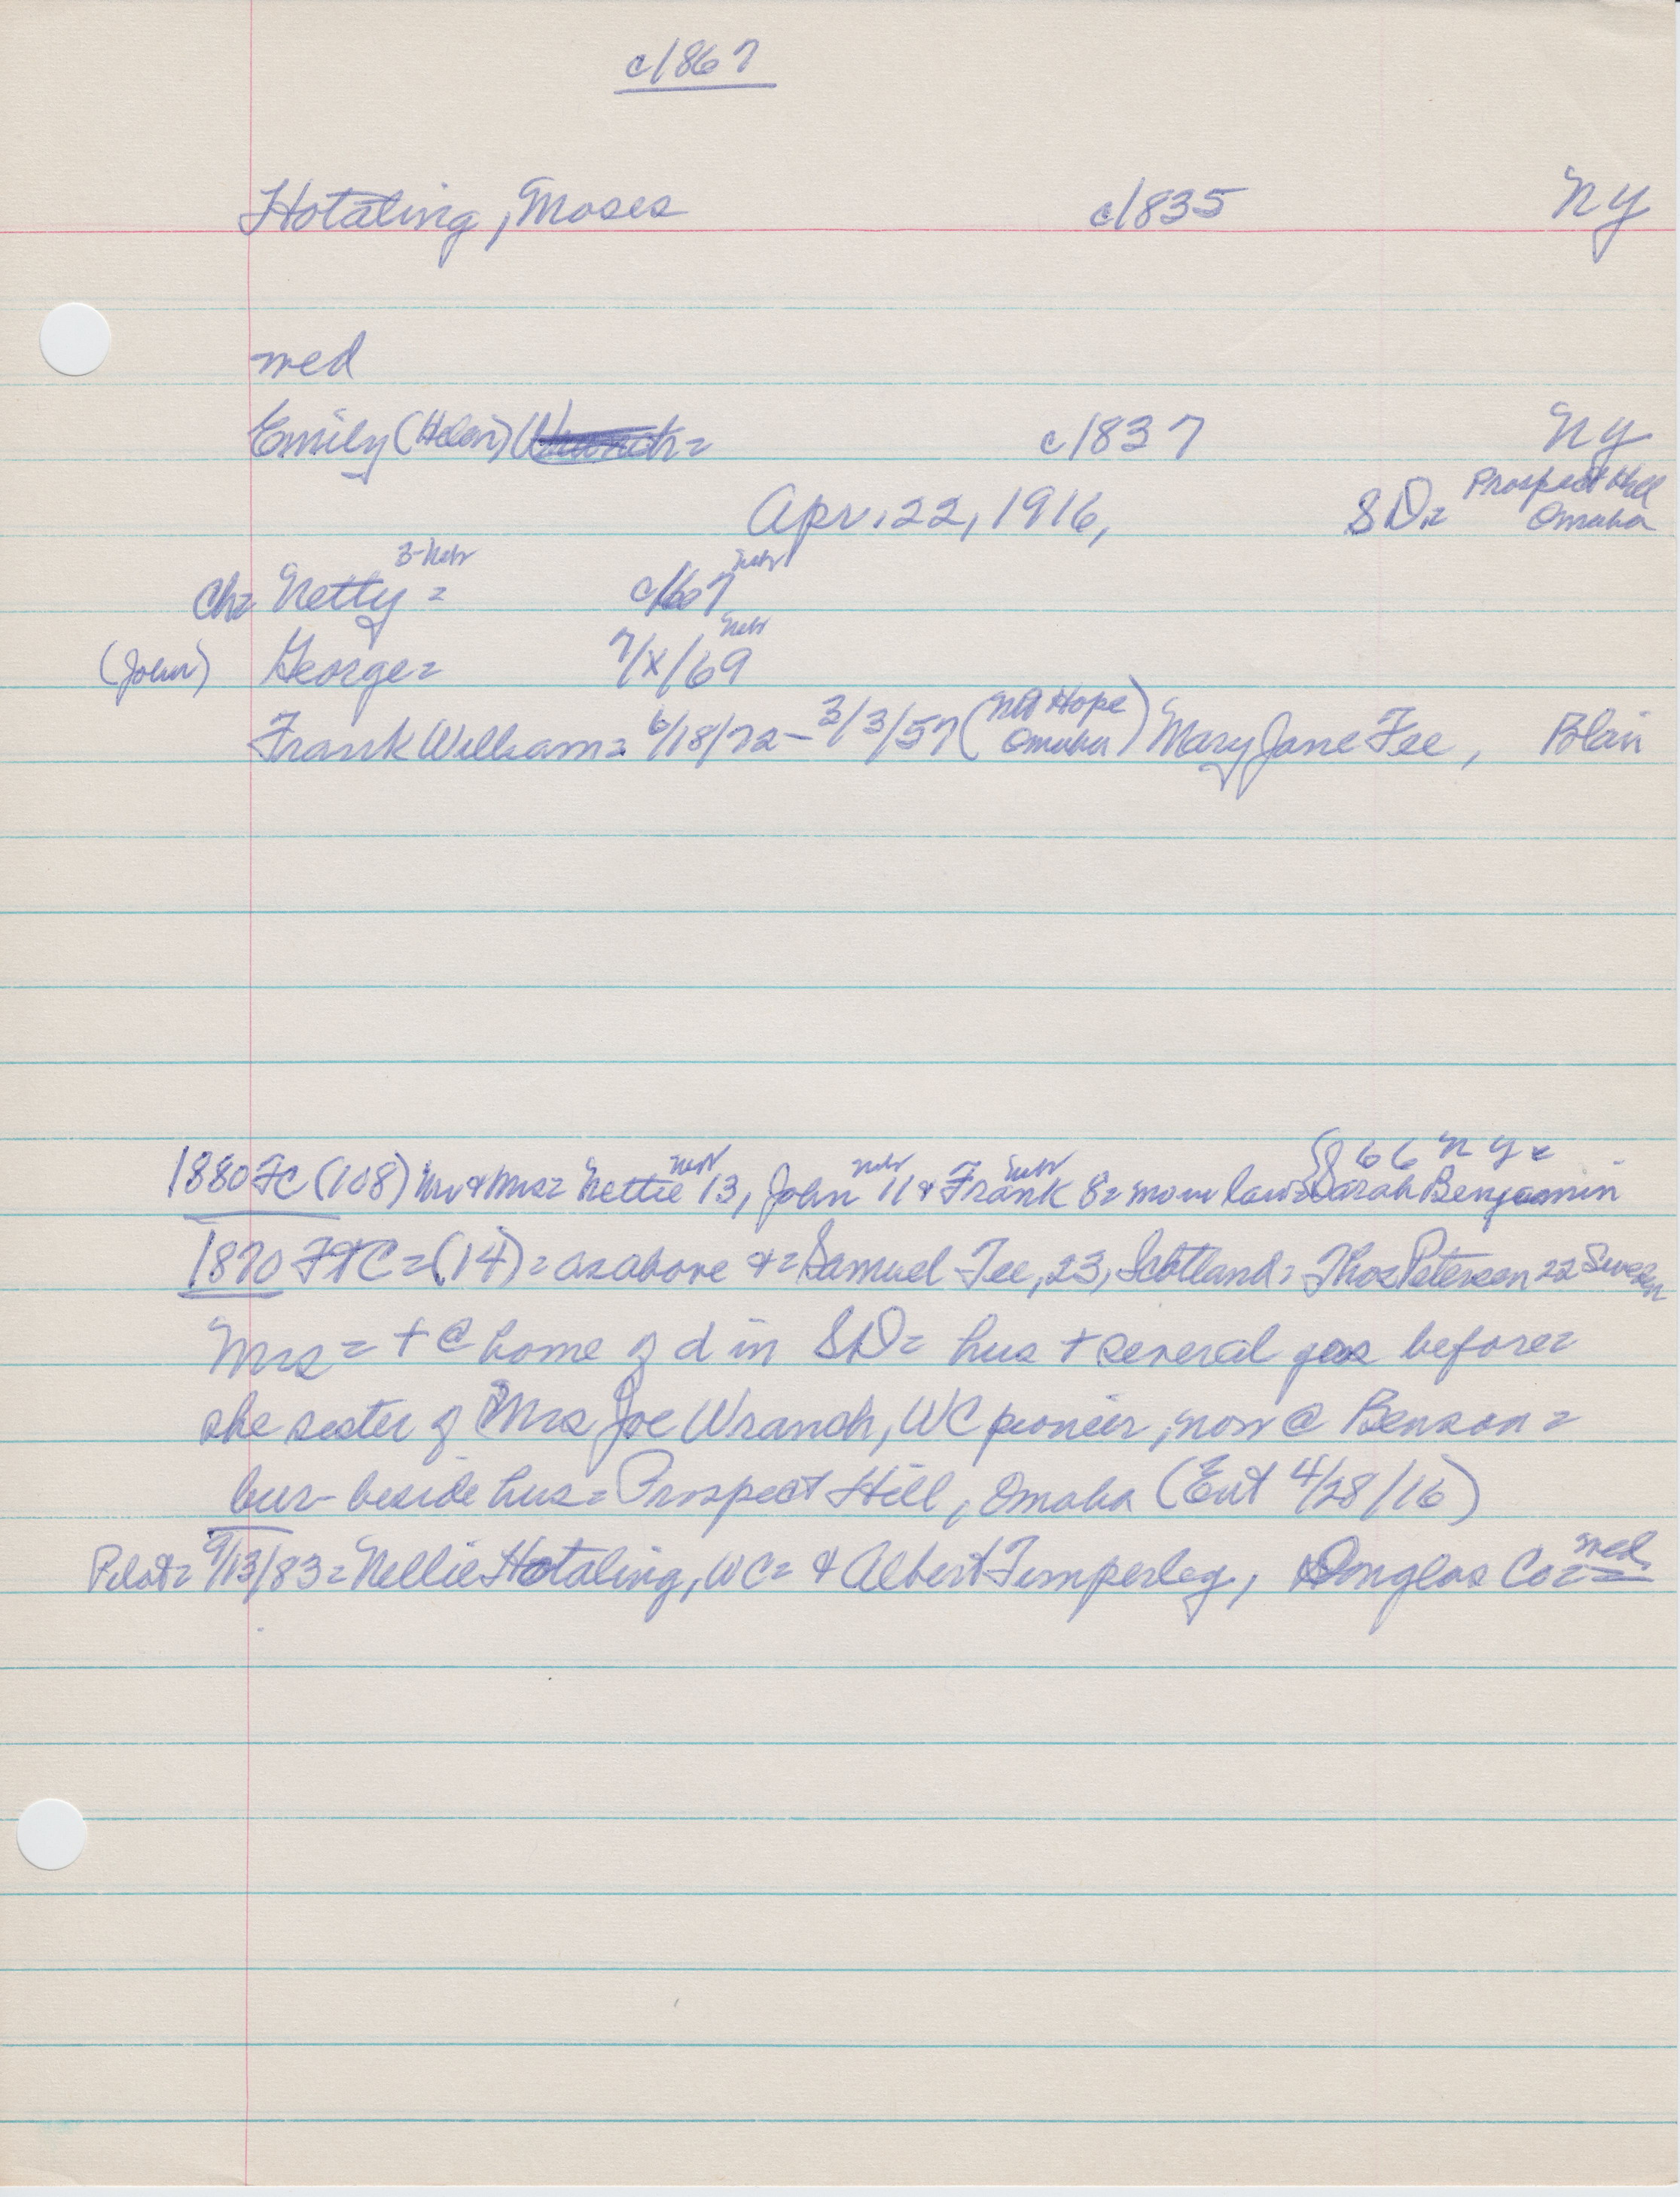 c/1867
Hotaling, Moses c/1835 NY
med
Emily (Helen) c/1837 NY
Apr. 22, 1916, SD= Prospect Hill Omaha
3-Nebr Nebr
Ch= Netty = c/67
Nebr
(John) George= 7/X/69
Frank William= 6/18/72 - 3/3/57 (Mt Hope Omaha) Mary Jane Fee, Blair
Nebr Nebr Nebr 66 NY=
1880 FC (108) Mr & Mrs= Nettie 13, John 11 & Frank 8= mom law= Sarah Benjamin
1870 FTC = (14) = as above & = Samuel Fee, 23, Scotland= Thos Petersen 22 Sweden
Mrs = + @ home of d in SD= hus + several yrs before=
she sister of Mrs Joe Wranch, WC pioneer, now @ Benson=
bur- beside hus= Prospect Hill, Omaha (Ent 4/28/16)
med
Pilot= 9/13/83= Nellie Hotaling, WC= & Albert Timperley, Douglas Co==